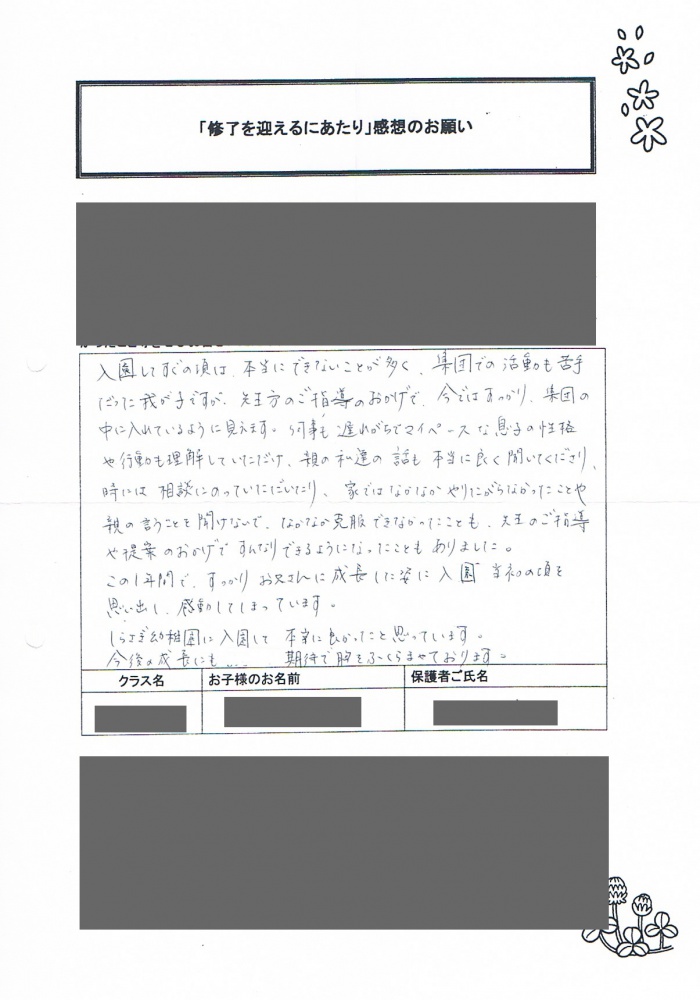 「修了を迎えるにあたり」感想のお願い
入園してすぐの頃は、本当にできないことが多く、集団での活動も苦手
だった我が子ですが、先生方のご指導のおかげで、今ではすっかり、集団の
中に入れているように見えます。何事も遅れがちでマイペースな息子の性格
や行動も理解していただけ、親の私達の話も本当に良く聞いてくださり、
時には相談にのっていただいたり、家ではなかなかやりたがらなかったことや
親の言うことを聞けないで、なかなか克服できなかったことも、先生のご指導
や提案のおかげですんなりできるようになったこともありました。
この1年間で、すっかりお兄さんに成長した姿に入園当初の頃を
思い出し、感動してしまっています。
しらさぎ幼稚園に入園して本当に良かったと思っています。
今後の成長にも…. 期待で胸をふくらませております。
クラス名 お子様のお名前 保護者ご氏名